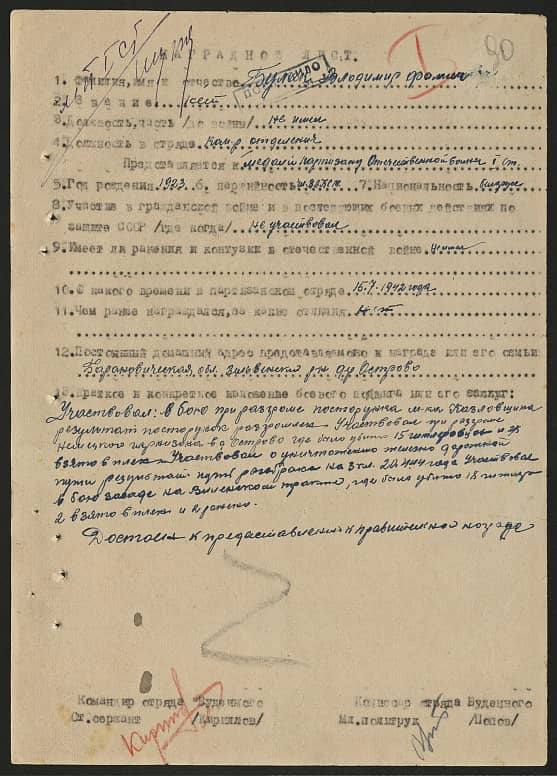 НАГРАДНОЙ ЛИСТ.
20
1. Фамилия, имя и отчество Владимир Фомич
2. Звание
3. Должность, часть /до войны/ Не имел
4. Должность в отряде Ком. отделения
Представляется к медали Партизану Отечественной войны I ст.
5. Год рождения 1923. 6. партийность 7. Национальность
8. Участие в гражданской войне и в последующих боевых действиях по
защите СССР /где когда/ Не участвовал
9. Имеет ли ранения и контузии в отечественной войне
10. С какого времени в партизанском отряде. 15.7.1942 года
11. Чем ранее награждался, за какие отличия. Нет
12. Постоянный домашний адрес представляемого к награде или его семьи:
Барановическая, обл. Зельвенский р-н д. Острово
13. Краткое и конкретное изложение боевого подвига или его заслуг:
Участвовал: в бою при разгроме постерунка м-ка Козловщина
результат постерунок разгромлен. Участвовал при разгроме
немецкого гарнизона в д. Острово где было убито 15
взято в плен. Участвовал в уничтожении железно дорожной
пути результат пути на 3 кл. Участвовал
в бою засаде на тракте, где было убито 18
2 взято в плен и 2 ранено.
Достоин к предоставлению к правительственной награде
Командир отряда Буденного
Ст. сержант /Кириллов/
Комиссар отряда Буденного
Мл. политрук /Попов/